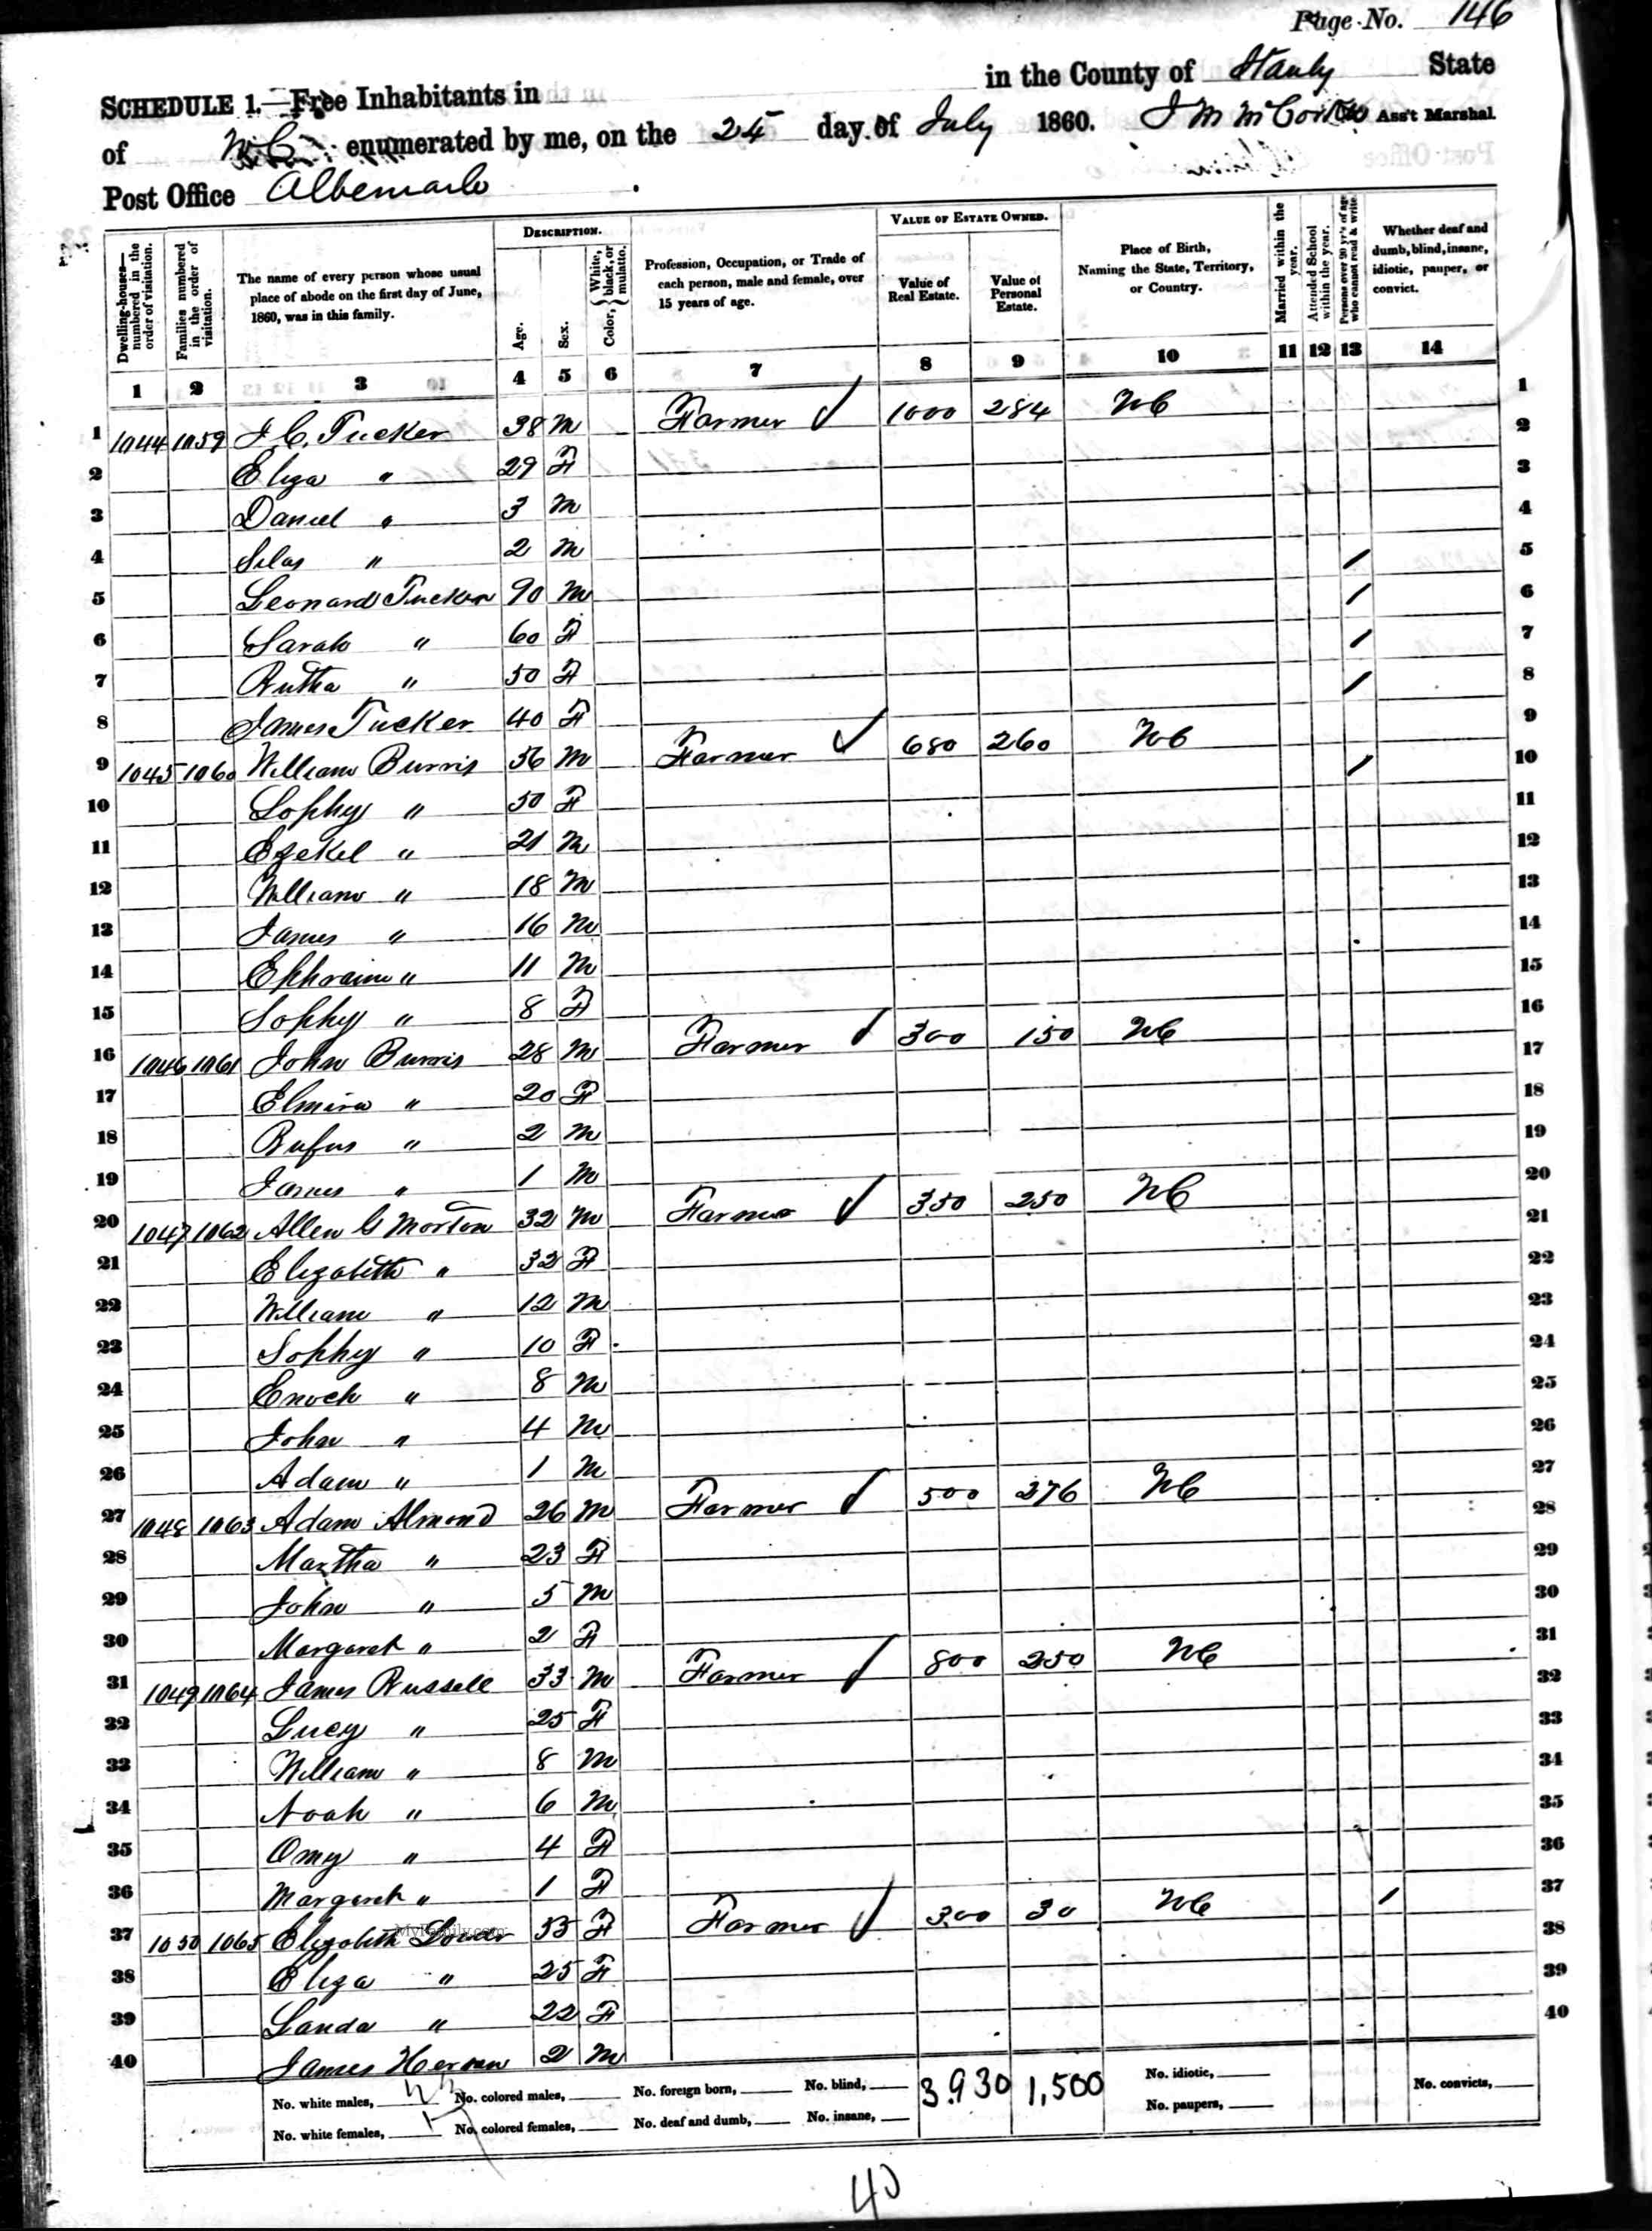 Page No. 146
SCHEDULE 1.—Free Inhabitants in in the County of Stanly State
of N C enumerated by me, on the 25 day of July 1860. J M McCorkle Ass't Marshal.
Post Office Albemarle
DESCRIPTION. VALUE OF ESTATE OWNED.
Dwelling-houses—numbered in the order of visitation. Families numbered in the order of visitation. The name of every person whose usual place of abode on the first day of June, 1860, was in this family. Age. Sex. Color, { White, black, or mulatto. Profession, Occupation, or Trade of each person, male and female, over 15 years of age. Value of Real Estate. Value of Personal Estate. Place of Birth, Naming the State, Territory, or Country. Married within the year. Attended School within the year. Persons over 20 yr's of age who cannot read & write. Whether deaf and dumb, blind, insane, idiotic, pauper, or convict.
1 2 3 4 5 6 7 8 9 10 11 12 13 14
1 1044 1059 J C. Tucker 38 M Farmer ✓ 1000 284 NC 1
2 Eliza " 29 F 2
3 Daniel " 3 M 3
4 Silas " 2 M 4
5 Leonard Tucker 90 M / 5
6 Sarah " 60 F / 6
7 Rutha " 50 F / 7
8 James Tucker 40 F / 8
9 1045 1060 William Burris 56 M Farmer ✓ 680 260 NC 9
10 Sophy " 50 F / 10
11 Ezekel " 21 M 11
12 William " 18 M 12
13 James " 16 M 13
14 Ephraim " 11 M 14
15 Sophy " 8 F 15
16 1046 1061 John Burris 28 M Farmer ✓ 300 150 NC 16
17 Elmira " 20 F 17
18 Rufus " 2 M 18
19 James " 1 M 19
20 1047 1062 Allen G Morton 32 M Farmer ✓ 350 250 NC 20
21 Elizabeth " 32 F 21
22 William " 12 M 22
23 Sophy " 10 F 23
24 Enoch " 8 M 24
25 John " 4 M 25
26 Adam " 1 M 26
27 1048 1063 Adam Almond 26 M Farmer ✓ 500 276 NC 27
28 Martha " 23 F 28
29 John " 5 M 29
30 Margaret " 2 F 30
31 1049 1064 James Russell 33 M Farmer ✓ 800 250 NC 31
32 Lucy " 25 F 32
33 William " 8 M 33
34 Noah " 6 M 34
35 Omy " 4 F 35
36 Margaret " 1 F 36
37 1050 1065 Elizabeth 55 F Farmer ✓ 300 30 NC / 37
38 Eliza " 25 F 38
39 Landa " 22 F 39
40 James 2 M 40
No. white males, 23 No. colored males, No. foreign born, No. blind, 3.930 1,500 No. idiotic, No. convicts,
No. white females, 17 No. colored females, No. deaf and dumb, No. insane, No. paupers,
MyFamily.com
40